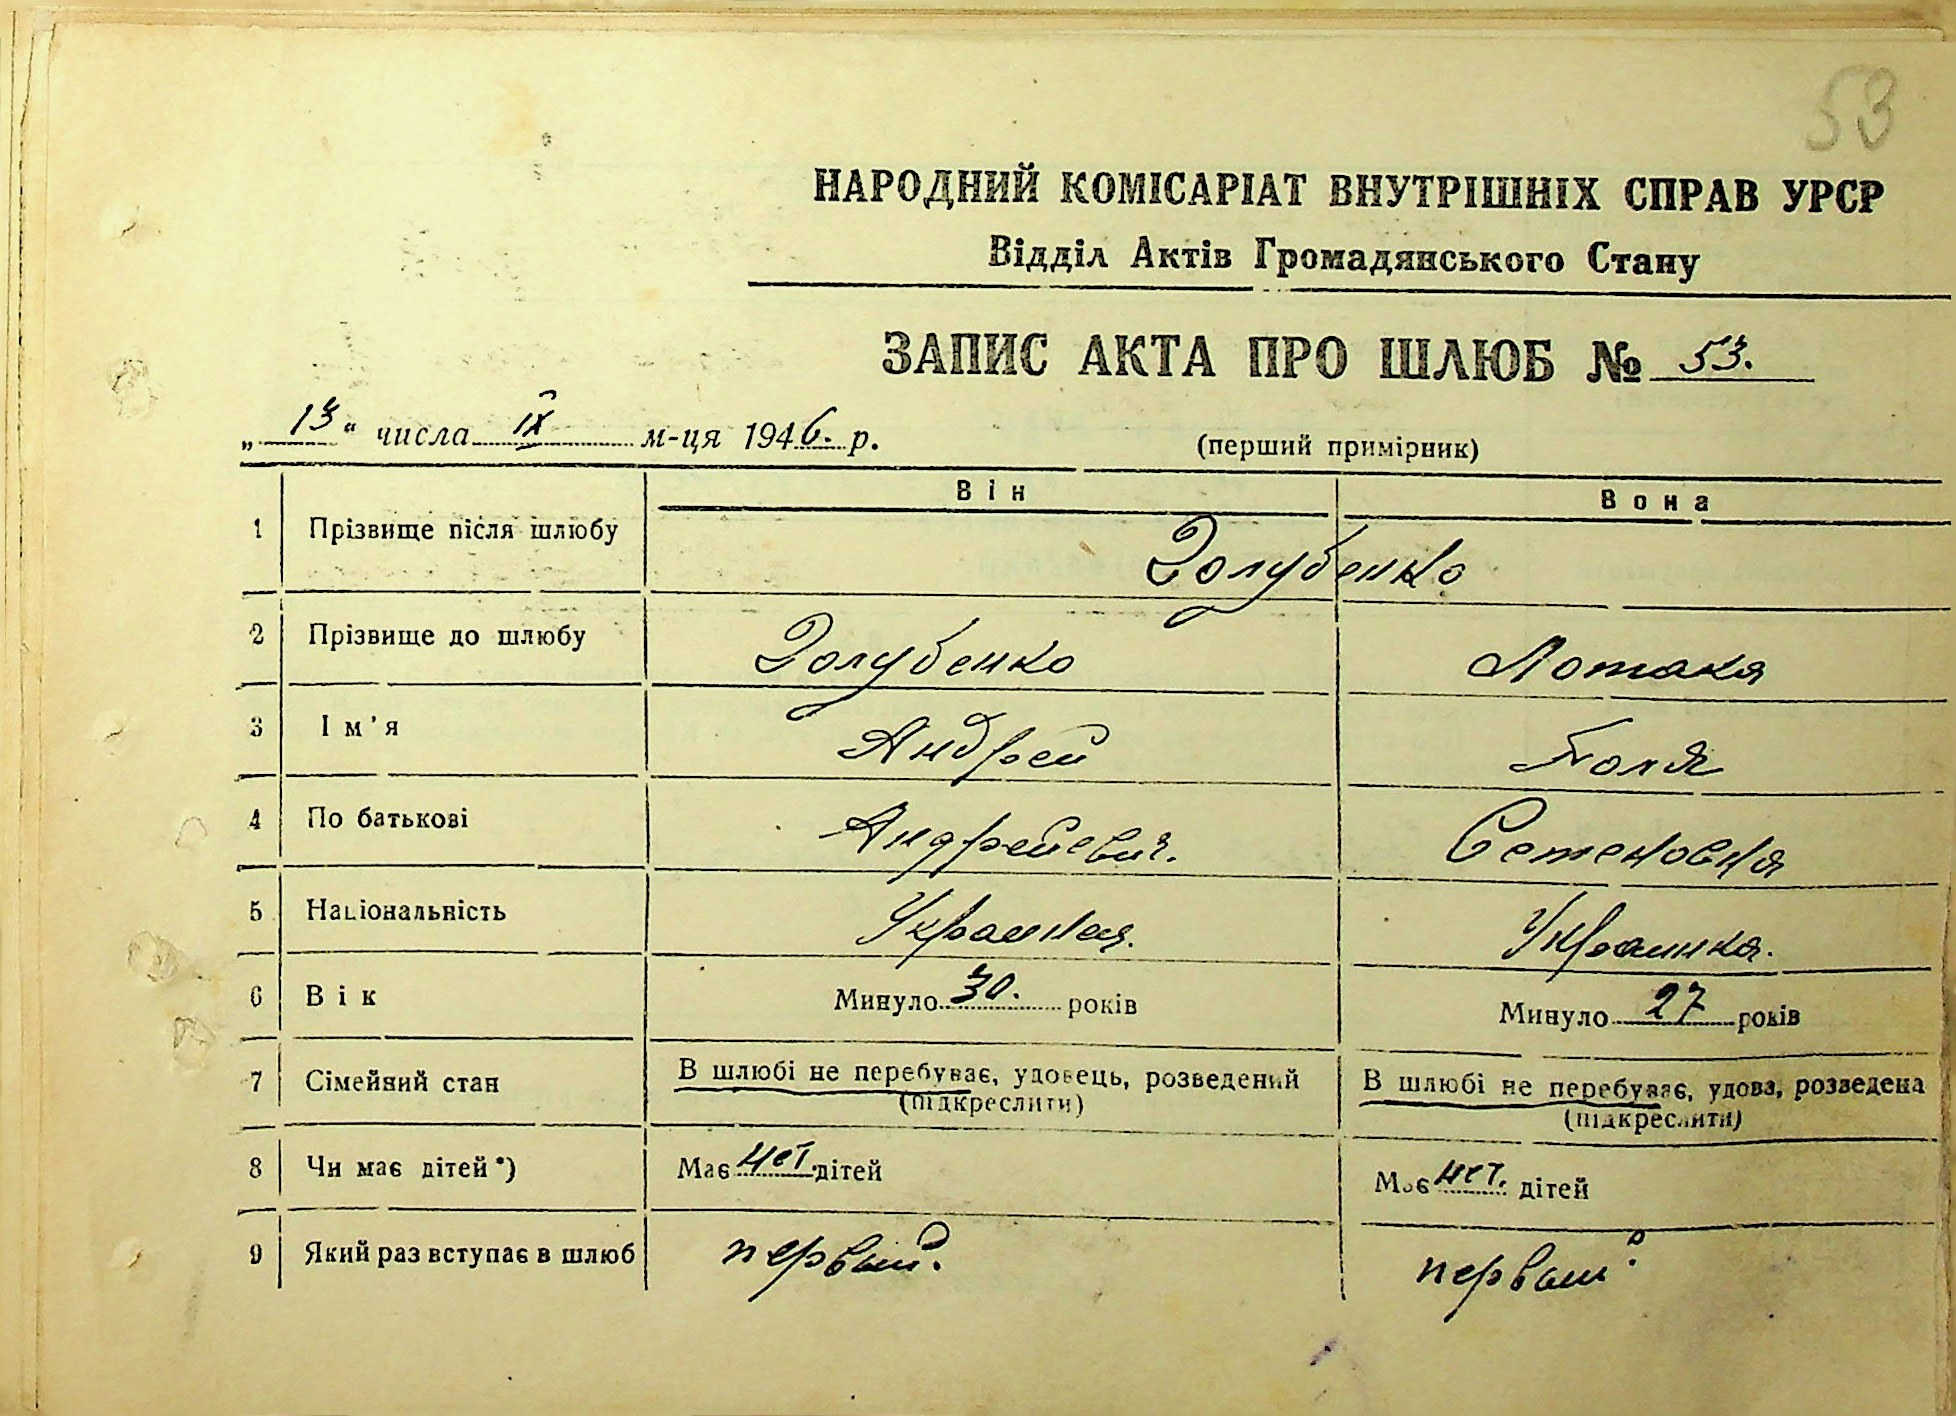 53
НАРОДНИЙ КОМІСАРІАТ ВНУТРІШНІХ СПРАВ УРСР
Відділ Актів Громадянського Стану
ЗАПИС АКТА ПРО ШЛЮБ № 53.
„13“ числа IX м-ця 1946. р. (перший примірник)
Він Вона
1 Прізвище після шлюбу Голубенко
2 Прізвище до шлюбу Голубенко Лотакя
3 Ім'я Андрей Поля
4 По батькові Андреевич. Семеновня
5 Національність Украинец. Украинка.
6 Вік Минуло 30. років Минуло 27 років
7 Сімейний стан В шлюбі не перебуває, удовець, розведений В шлюбі не перебуває, удова, розведена
(підкреслити) (підкреслити)
8 Чи має дітей*) Має нет дітей Має нет. дітей
9 Який раз вступає в шлюб первый. первый.